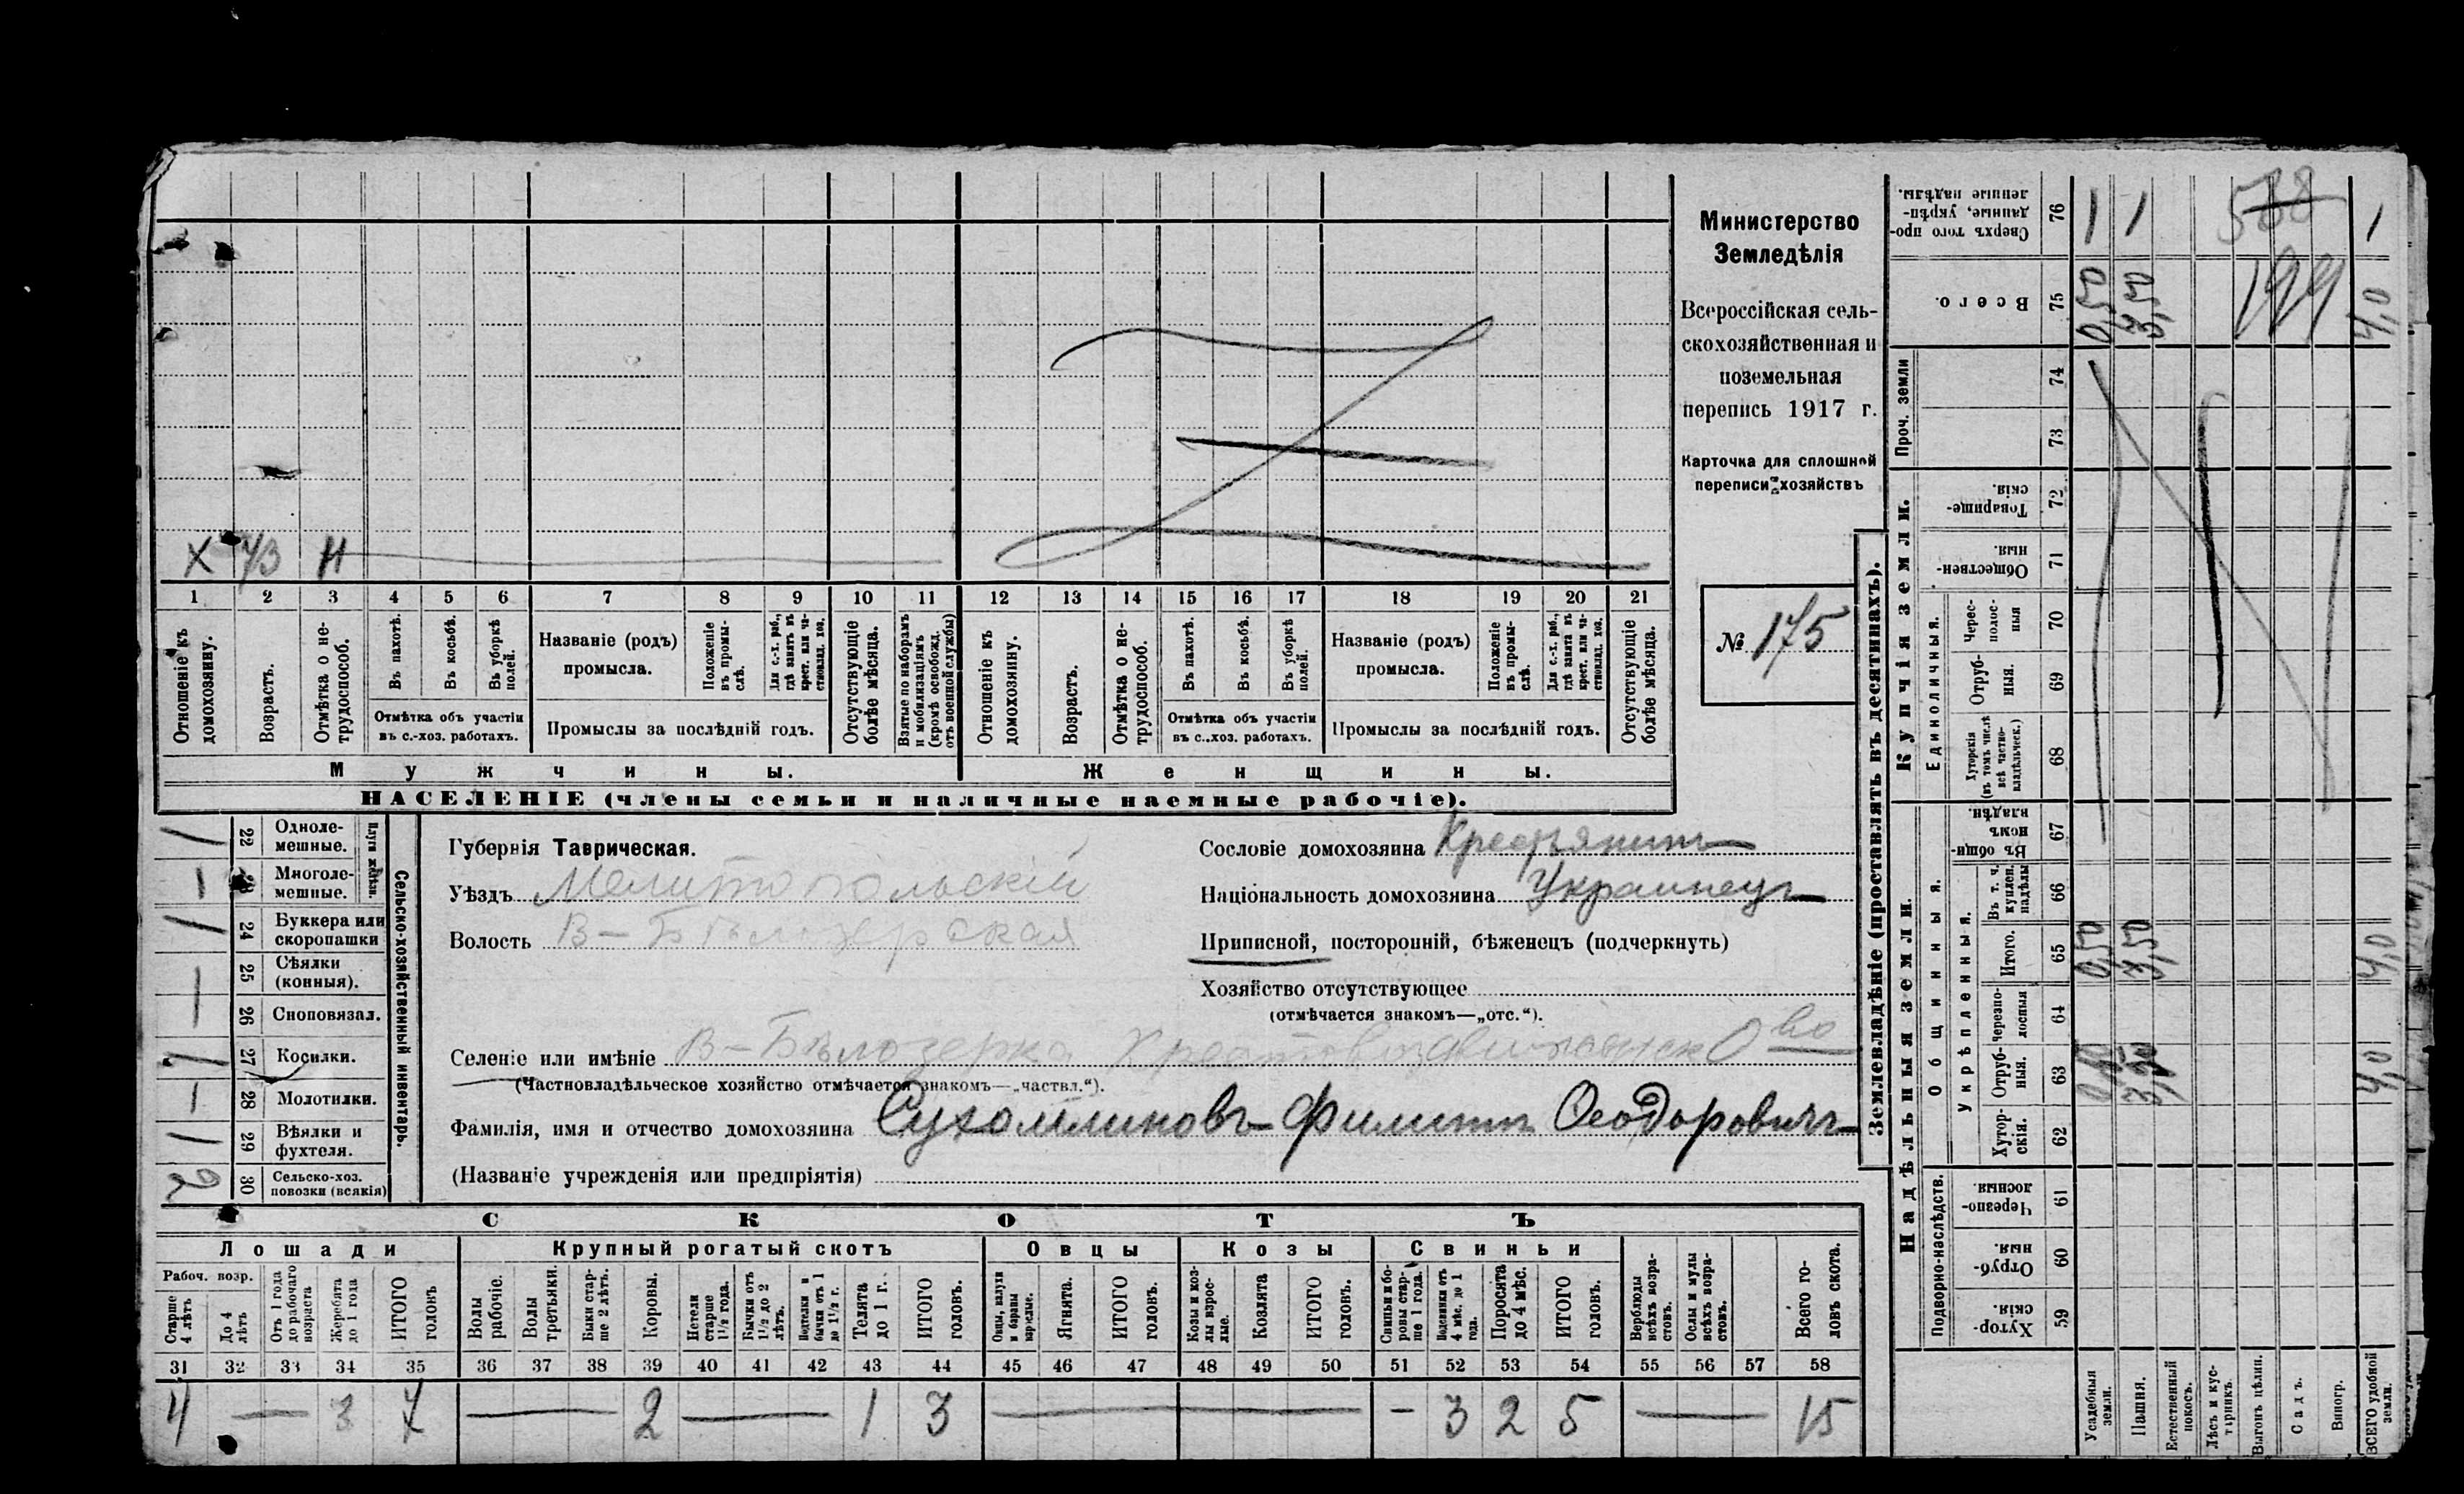 Министерство
Земледѣлія
Всероссійская сель-
скохозяйственная и
поземельная
перепись 1917 г.
Карточка для сплошной
переписи хозяйствъ
№ 175
Х 73 Н
1 2 3 4 5 6 7 8 9 10 11 12 13 14 15 16 17 18 19 20 21
Отношеніе къ домохозяину.
Возрастъ.
Отмѣтка о не-трудоспособ.
Въ пахотѣ.
Въ косьбѣ.
Въ уборкѣ полей.
Отмѣтка объ участіи
въ с.-хоз. работахъ.
Названіе (родъ)
промысла.
Положеніе въ промы-слѣ.
Для с.-х. раб., гдѣ занятъ въ крест. или ча-стновлад. хоз.
Промыслы за послѣдній годъ.
Отсутствующіе болѣе мѣсяца.
Взятые по наборамъ и мобилизаціямъ (кромѣ освобожд. отъ военной службы)
Отношеніе къ домохозяину.
Возрастъ.
Отмѣтка о не-трудоспособ.
Въ пахотѣ.
Въ косьбѣ.
Въ уборкѣ полей.
Отмѣтка объ участіи
въ с.-хоз. работахъ.
Названіе (родъ)
промысла.
Положеніе въ промы-слѣ.
Для с.-х. раб., гдѣ занятъ въ крест. или ча-стновлад. хоз.
Промыслы за послѣдній годъ.
Отсутствующіе болѣе мѣсяца.
Мужчины. Женщины.
НАСЕЛЕНІЕ (члены семьи и наличные наемные рабочіе).
Сельско-хозяйственный инвентарь.
Плуги желѣзн.
1 22 Одноле-мешные.
Многоле-мешные.
1 24 Буккера или скоропашки
25 Сѣялки (конныя).
26 Сноповязал.
1 27 Косилки.
28 Молотилки.
1 29 Вѣялки и фухтеля.
2 30 Сельско-хоз. повозки (всякія)
Губернія Таврическая.
Уѣздъ Мелитопольскій
Волость В-Бѣлозерская
Сословіе домохозяина Крестьянинъ
Національность домохозяина Украинецъ
Приписной, посторонній, бѣженецъ (подчеркнуть)
Хозяйство отсутствующее
(отмѣчается знакомъ—„отс.“).
Селеніе или имѣніе В-Бѣлозерка О во
(Частновладѣльческое хозяйство отмѣчается знакомъ—„частвл.“).
Фамилія, имя и отчество домохозяина Сухомлиновъ Филиппъ Ѳеодоровичъ
(Названіе учрежденія или предпріятія)
СКОТЪ
Лошади Крупный рогатый скотъ Овцы Козы Свиньи
Рабоч. возр.
Старше 4 лѣтъ
До 4 лѣтъ
Отъ 1 года до рабочаго возраста
Жеребята до 1 года
ИТОГО головъ
Волы рабочіе.
Волы третьяки.
Быки стар-ше 2 лѣтъ.
Коровы.
Нетели старше 1½ года.
Бычки отъ 1½ до 2 лѣтъ.
бычки отъ 1 до 1½ г.
Телята до 1 г.
ИТОГО головъ.
Овцы, валухи и бараны взрослые.
Ягнята.
ИТОГО головъ.
Козы и коз-лы взрос-лые.
Козлята
ИТОГО головъ.
Свиньи и бо-ровы стар-ше 1 года.
Подсвинки отъ 4 мѣс. до 1 года.
Поросята до 4 мѣс.
ИТОГО головъ.
Верблюды всѣхъ возра-стовъ.
Ослы и мулы всѣхъ возра-стовъ.
Всего го-ловъ скота.
31 32 33 34 35 36 37 38 39 40 41 42 43 44 45 46 47 48 49 50 51 52 53 54 55 56 57 58
4 — 3 7 — 2 — 1 3 — - 3 2 5 — 15
Землевладѣніе (проставлять въ десятинахъ).
Купчія земли.
Надѣльныя земли.
Сверхъ того про-данные, укрѣп-ленные надѣлы. 76
Всего. 75 0,50 3,50 4,0
588
199
Проч. земли 74 73
Товарище-скія. 72
Обществен-ныя. 71
Единоличныя.
Черес-полос-ныя 70
Отруб-ныя. 69
Хуторскія (въ томъ числѣ всѣ частно-владѣльческ.) 68
Общинныя.
Въ общин-номъ владѣн. 67
Укрѣпленныя.
Въ т. ч. куплен. надѣлы 66
Итого. 65 0,50 3,50 4,0
Черезпо-лосныя 64
Отруб-ныя. 63 0,50 3,50 4,0
Хутор-скія. 62
Подворно-наслѣдств.
Черезпо-лосныя. 61
Отруб-ныя. 60
Хутор-скія. 59
Усадебныя земли.
Пашня.
Естественный покосъ.
Лѣсъ и кус-тарникъ.
Выгонъ цѣлин.
Садъ.
Виногр.
ВСЕГО удобной земли.